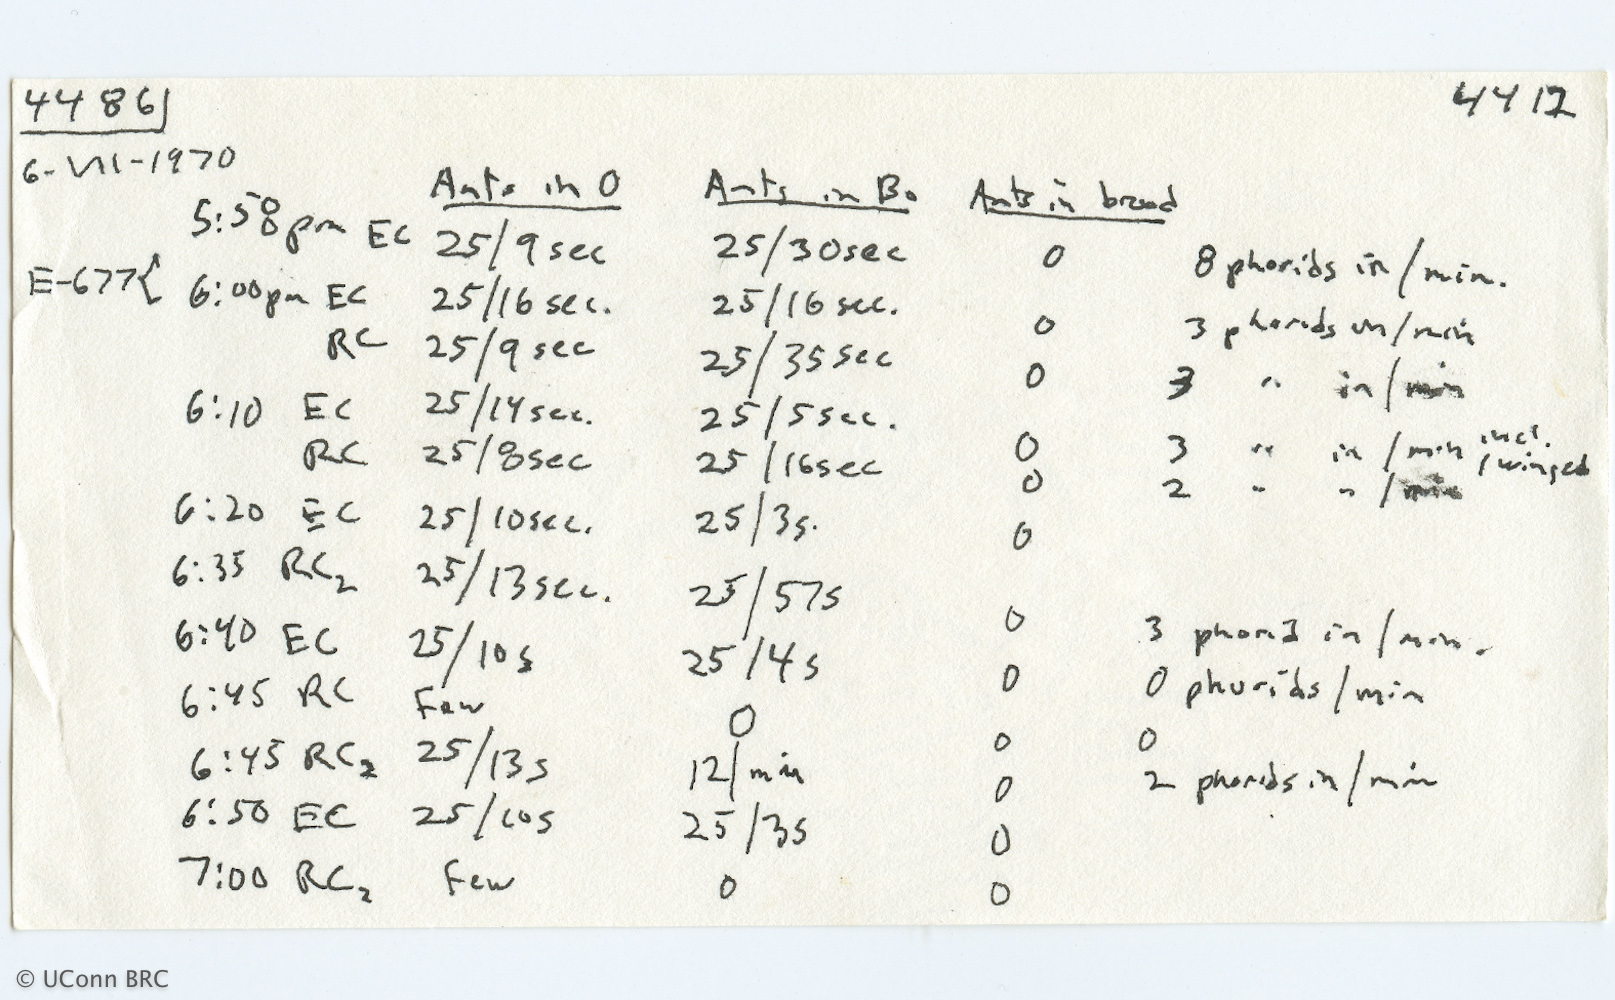 4486 4412
6-VII-1970
Ants in O Ants in Bo Ants in brood
5:58pm EC 25/9 sec 25/30sec 0 8 phorids in/min.
E-677{ 6:00pm EC 25/16 sec. 25/16 sec. 0 3 phorids in/min
RC 25/9 sec 25/35 sec 0 3 " in/min
6:10 EC 25/14sec. 25/5sec. 0 3 " in/min incl. 1 winged
RC 25/8sec 25/16sec 0 2 " " /min
6:20 EC 25/10sec. 25/3s. 0
6:35 RC2 25/13sec. 25/57s 0 3 phorid in/min.
6:40 EC 25/10s 25/4s 0 0 phorids/min
6:45 RC Few 0 0 0
6:45 RC2 25/13s 12/min 0 2 phorids in/min
6:50 EC 25/10s 25/3s 0
7:00 RC2 Few 0 0
© UConn BRC